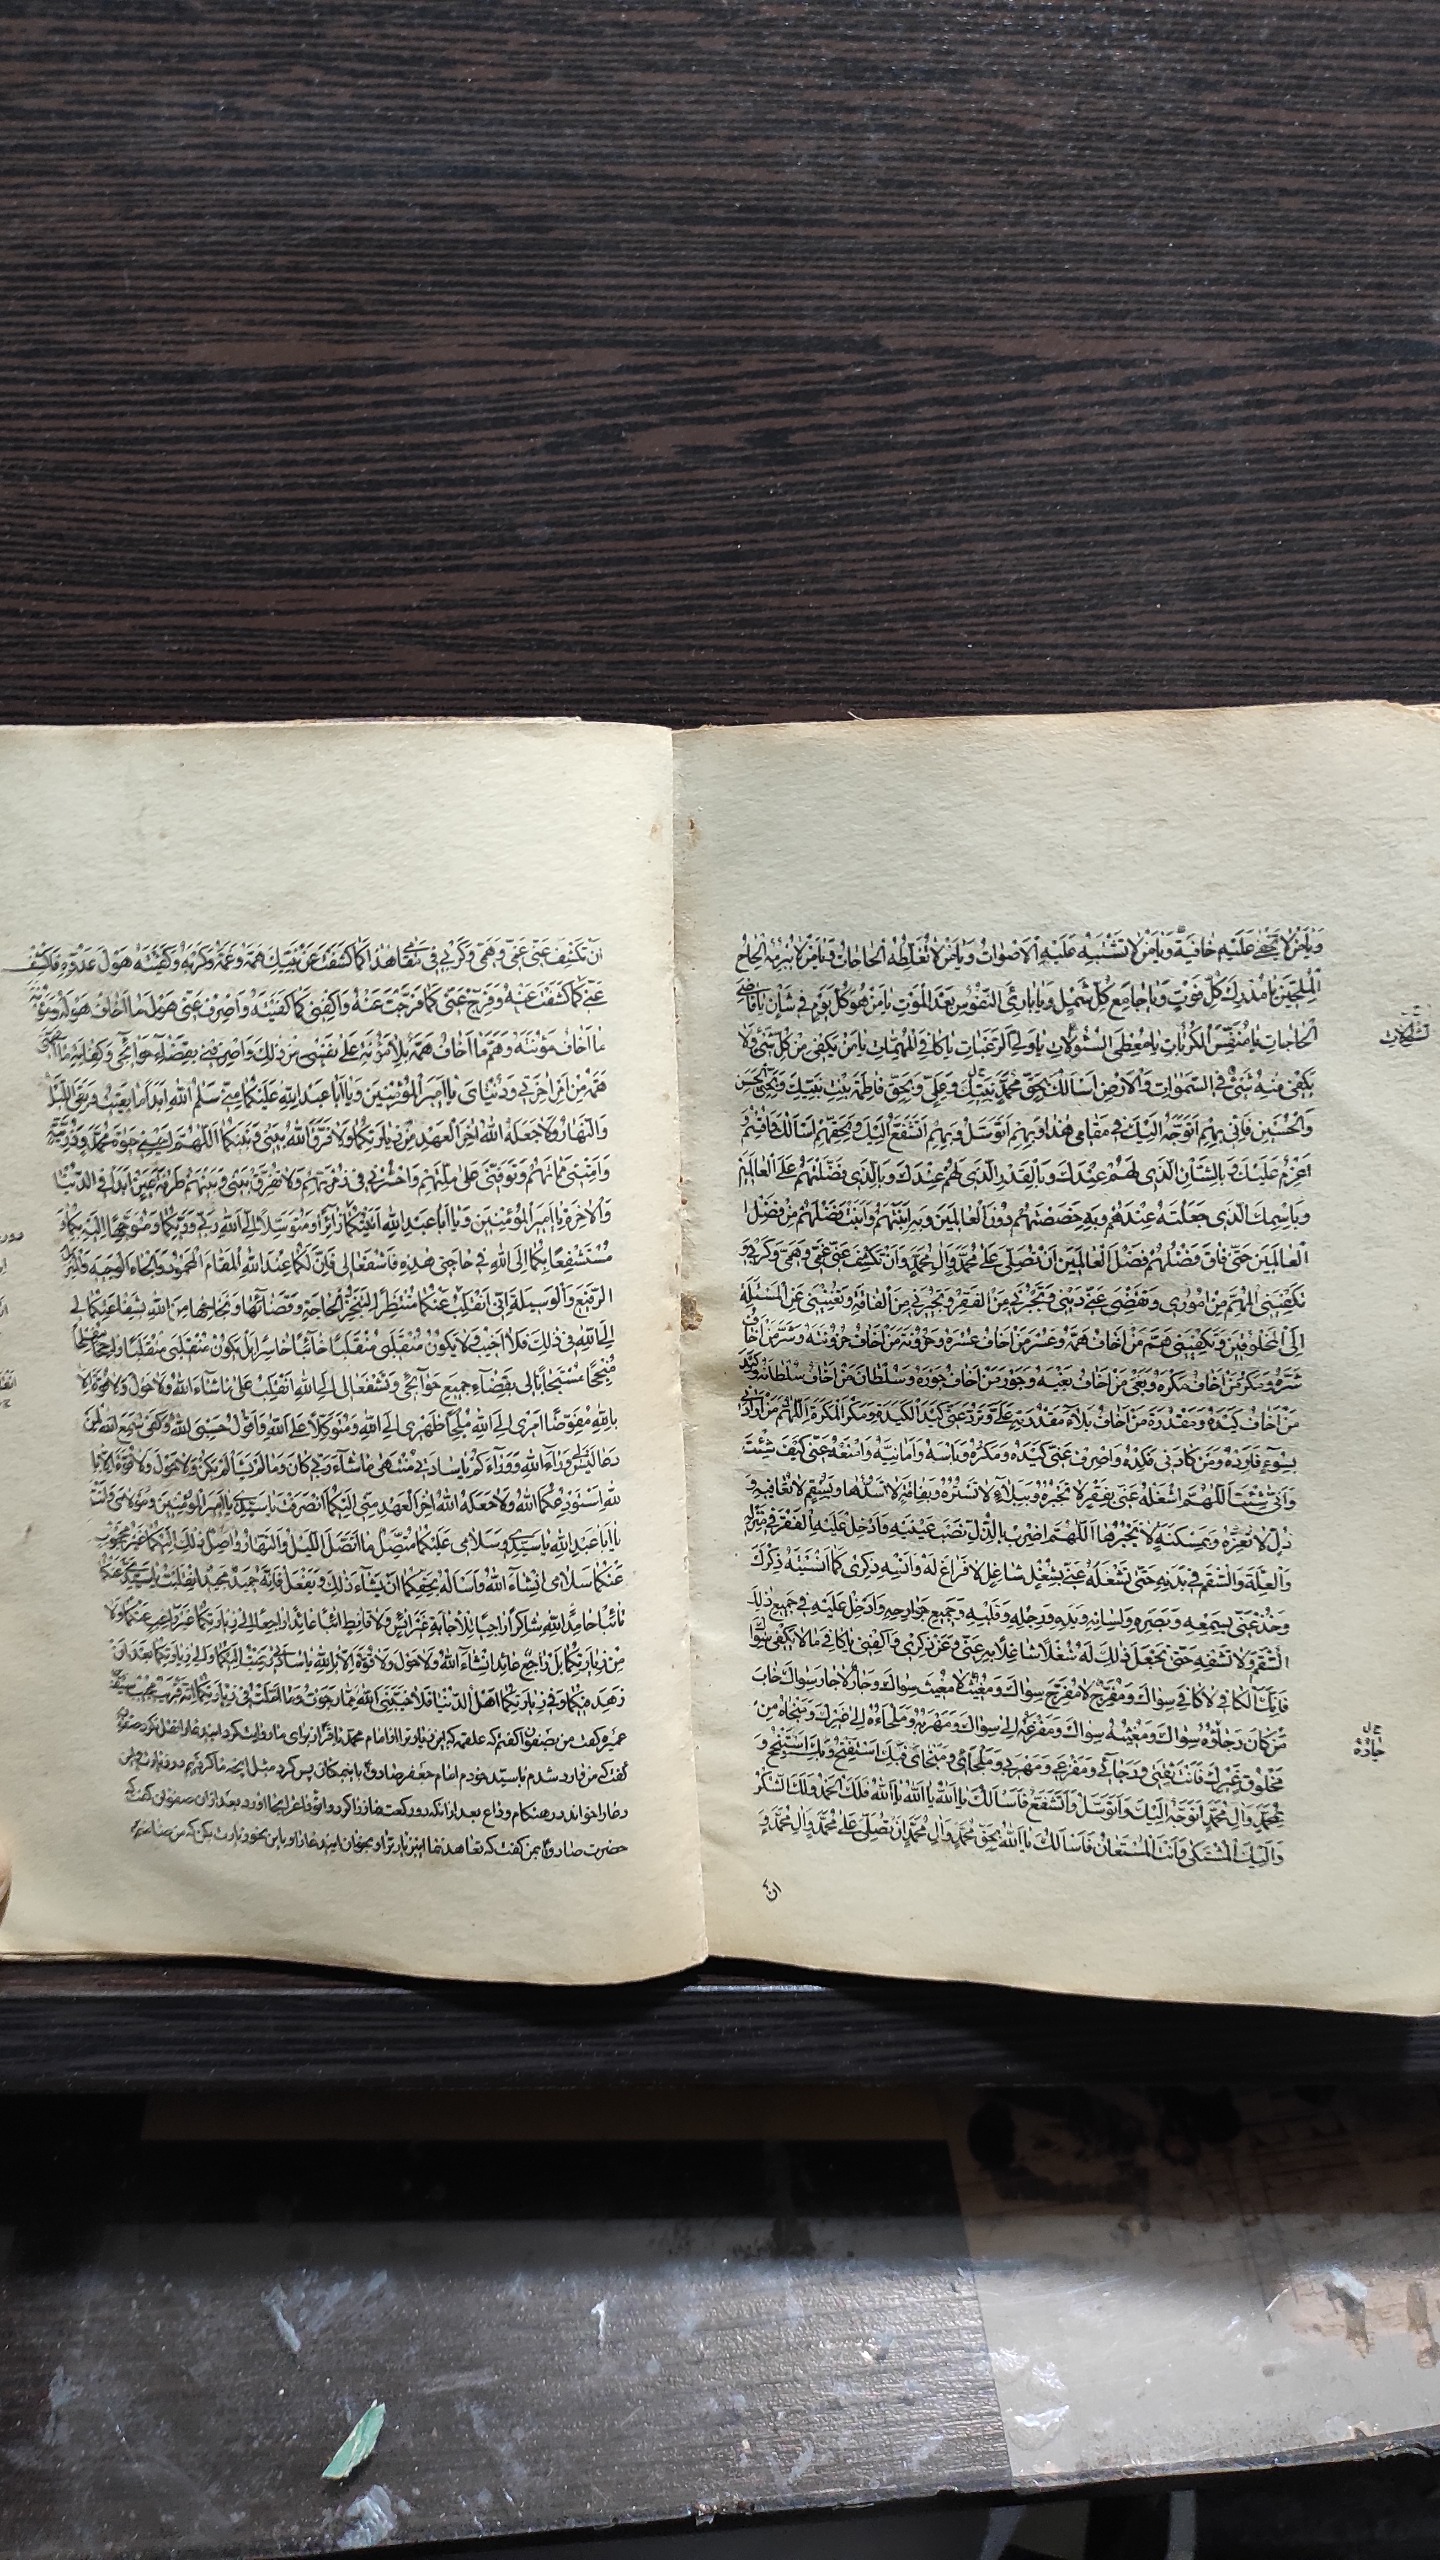 وَيا مَنْ لا تَخْفى عَلَيْهِ خافِيَةٌ وَيا مَنْ لا تَشْتَبِهُ عَلَيْهِ الْاَصْواتُ وَيا مَنْ لا تُغَلِّطُهُ الْحاجاتُ وَيا مَنْ لا يُبْرِمُهُ اِلْحاحُ
الْمُلِحّينَ يا مُدْرِكَ كُلِّ فَوْتٍ وَيا جامِعَ كُلِّ شَمْلٍ وَيا بارِئَ النُّفُوسِ بَعْدَ الْمَوْتِ يا مَنْ هُوَ كُلَّ يَوْمٍ في شَأْنٍ يا قاضِيَ
الْحاجاتِ يا مُنَفِّسَ الْكُرُباتِ يا مُعْطِيَ السُّؤُلاتِ يا وَلِيَّ الرَّغَباتِ يا كافِيَ الْمُهِمّاتِ يا مَنْ يَكْفي مِنْ كُلِّ شَيْءٍ وَلا
يَكْفي مِنْهُ شَيْءٌ فِي السَّمٰواتِ وَالْاَرْضِ اَسْأَلُكَ بِحَقِّ مُحَمَّدٍ نَبِيِّكَ وَعَلِيٍّ وَبِحَقِّ فاطِمَةَ بِنْتِ نَبِيِّكَ وَبِحَقِّ الْحَسَنِ
وَالْحُسَيْنِ فَاِنّي بِهِمْ اَتَوَجَّهُ اِلَيْكَ في مَقامي هٰذا وَبِهِمْ اَتَوَسَّلُ وَبِهِمْ اَتَشَفَّعُ اِلَيْكَ وَبِحَقِّهِمْ اَسْأَلُكَ وَاُقْسِمُ وَ
اَعْزِمُ عَلَيْكَ وَبِالشَّأْنِ الَّذي لَهُمْ عِنْدَكَ وَبِالْقَدْرِ الَّذي لَهُمْ عِنْدَكَ وَبِالَّذي فَضَّلْتَهُمْ عَلَى الْعالَمينَ
وَبِاسْمِكَ الَّذي جَعَلْتَهُ عِنْدَهُمْ وَبِهِ خَصَصْتَهُمْ دُونَ الْعالَمينَ وَبِهِ اَبَنْتَهُمْ وَاَبَنْتَ فَضْلَهُمْ مِنْ فَضْلِ
الْعالَمينَ حَتّى فاقَ فَضْلُهُمْ فَضْلَ الْعالَمينَ اَنْ تُصَلِّيَ عَلى مُحَمَّدٍ وَآلِ مُحَمَّدٍ وَاَنْ تَكْشِفَ عَنّي غَمّي وَهَمّي وَكَرْبي وَ
تَكْفِيَنِي الْمُهِمَّ مِنْ اُمُوري وَتَقْضِيَ عَنّي دَيْني وَتُجيرَني مِنَ الْفَقْرِ وَتُجيرَني مِنَ الْفاقَةِ وَتُغْنِيَني عَنِ الْمَسْئَلَةِ
اِلَى الْمَخْلُوقينَ وَتَكْفِيَني هَمَّ مَنْ اَخافُ هَمَّهُ وَعُسْرَ مَنْ اَخافُ عُسْرَهُ وَحُزُونَةَ مَنْ اَخافُ حُزُونَتَهُ وَشَرَّ مَنْ اَخافُ
شَرَّهُ وَمَكْرَ مَنْ اَخافُ مَكْرَهُ وَبَغْيَ مَنْ اَخافُ بَغْيَهُ وَجَوْرَ مَنْ اَخافُ جَوْرَهُ وَسُلْطانَ مَنْ اَخافُ سُلْطانَهُ وَكَيْدَ
مَنْ اَخافُ كَيْدَهُ وَمَقْدُرَةَ مَنْ اَخافُ مَقْدُرَتِهِ عَلَيَّ وَتَرُدَّ عَنّي كَيْدَ الْكَيَدَةِ وَمَكْرَ الْمَكَرَةِ اَللّهُمَّ مَنْ اَرادَني
بِسُوءٍ فَاَرِدْهُ وَمَنْ كادَني فَكِدْهُ وَاصْرِفْ عَنّي كَيْدَهُ وَمَكْرَهُ وَبَأْسَهُ وَاَمانِيَّهُ وَامْنَعْهُ عَنّي كَيْفَ شِئْتَ
وَاَنّى شِئْتَ اَللّهُمَّ اشْغَلْهُ عَنّي بِفَقْرٍ لا تَجْبُرُهُ وَبِبَلاءٍ لا تَسْتُرُهُ وَبِفاقَةٍ لا تَسُدُّها وَبِسُقْمٍ لا تُعافيهِ وَ
ذُلٍّ لا تُعِزُّهُ وَبِمَسْكَنَةٍ لا تَجْبُرُها اَللّهُمَّ اضْرِبْ بِالذُّلِّ نَصْبَ عَيْنَيْهِ وَاَدْخِلْ عَلَيْهِ الْفَقْرَ في مَنْزِلِهِ
وَالْعِلَّةَ وَالسُّقْمَ في بَدَنِهِ حَتّى تَشْغَلَهُ عَنّي بِشُغْلٍ شاغِلٍ لا فَراغَ لَهُ وَاَنْسِهِ ذِكْري كَما اَنْسَيْتَهُ ذِكْرَكَ
وَخُذْ عَنّي بِسَمْعِهِ وَبَصَرِهِ وَلِسانِهِ وَيَدِهِ وَرِجْلِهِ وَقَلْبِهِ وَجَميعِ جَوارِحِهِ وَاَدْخِلْ عَلَيْهِ في جَميعِ ذٰلِكَ
السُّقْمَ وَلا تَشْفِهِ حَتّى تَجْعَلَ ذٰلِكَ لَهُ شُغْلاً شاغِلاً بِهِ عَنّي وَعَنْ ذِكْري وَاكْفِني يا كافِيَ ما لا يَكْفي سِواكَ
فَاِنَّكَ الْكافي لا كافِيَ سِواكَ وَمُفَرِّجٌ لا مُفَرِّجَ سِواكَ وَمُغيثٌ لا مُغيثَ سِواكَ وَجارٌ لا جارَ سِواكَ خابَ
مَنْ كانَ رَجاؤُهُ سِواكَ وَمُغيثُهُ سِواكَ وَمَفْزَعُهُ اِلى سِواكَ وَمَهْرَبُهُ وَمَلْجَاُهُ اِلى غَيْرِكَ وَمَنْجاهُ مِنْ
مَخْلُوقٍ غَيْرِكَ فَاَنْتَ ثِقَتي وَرَجائي وَمَفْزَعي وَمَهْرَبي وَمَلْجَأي وَمَنْجايَ فَبِكَ اَسْتَفْتِحُ وَبِكَ اَسْتَنْجِحُ وَ
بِمُحَمَّدٍ وَآلِ مُحَمَّدٍ اَتَوَجَّهُ اِلَيْكَ وَاَتَوَسَّلُ وَاَتَشَفَّعُ فَاَسْأَلُكَ يا اَللهُ يا اَللهُ يا اَللهُ فَلَكَ الْحَمْدُ وَلَكَ الشُّكْرُ
وَاِلَيْكَ الْمُشْتَكى وَاَنْتَ الْمُسْتَعانُ فَاَسْأَلُكَ يا اَللهُ بِحَقِّ مُحَمَّدٍ وَآلِ مُحَمَّدٍ اَنْ تُصَلِّيَ عَلى مُحَمَّدٍ وَآلِ مُحَمَّدٍ وَ
اَنْ
اَنْ تَكْشِفَ عَنّي غَمّي وَهَمّي وَكَرْبي في مَقامي هٰذا كَما كَشَفْتَ عَنْ نَبِيِّكَ هَمَّهُ وَغَمَّهُ وَكَرْبَهُ وَكَفَيْتَهُ هَوْلَ عَدُوِّهِ فَاكْشِفْ
عَنّي كَما كَشَفْتَ عَنْهُ وَفَرِّجْ عَنّي كَما فَرَّجْتَ عَنْهُ وَاكْفِني كَما كَفَيْتَهُ وَاصْرِفْ عَنّي هَوْلَ ما اَخافُ هَوْلَهُ وَمَؤُنَةَ
ما اَخافُ مَؤُنَتَهُ وَهَمَّ ما اَخافُ هَمَّهُ بِلا مَؤُنَةٍ عَلى نَفْسي مِنْ ذٰلِكَ وَاصْرِفْني بِقَضاءِ حَوائِجي وَكِفايَةِ ما اَهَمَّني
هَمُّهُ مِنْ اَمْرِ اٰخِرَتي وَدُنْيايَ يا اَميرَ الْمُؤْمِنينَ وَيا اَبا عَبْدِ اللهِ عَلَيْكُما مِنّي سَلامُ اللهِ اَبَداً ما بَقيتُ وَبَقِيَ اللَّيْلُ
وَالنَّهارُ وَلا جَعَلَهُ اللهُ اٰخِرَ الْعَهْدِ مِنْ زِيارَتِكُما وَلا فَرَّقَ اللهُ بَيْني وَبَيْنَكُما اَللّهُمَّ اَحْيِني حَيٰوةَ مُحَمَّدٍ وَذُرِّيَّتِهِ
وَاَمِتْني مَماتَهُمْ وَتَوَفَّني عَلى مِلَّتِهِمْ وَاحْشُرْني في زُمْرَتِهِمْ وَلا تُفَرِّقْ بَيْني وَبَيْنَهُمْ طَرْفَةَ عَيْنٍ اَبَداً فِي الدُّنْيا
وَالْاٰخِرَةِ يا اَميرَ الْمُؤْمِنينَ وَيا اَبا عَبْدِ اللهِ اَتَيْتُكُما زائِراً وَمُتَوَسِّلاً اِلَى اللهِ رَبّي وَرَبِّكُما وَمُتَوَجِّهاً اِلَيْهِ بِكُما وَ
مُسْتَشْفِعاً بِكُما اِلَى اللهِ في حاجَتي هٰذِهِ فَاشْفَعا لي فَاِنَّ لَكُما عِنْدَ اللهِ الْمَقامَ الْمَحْمُودَ وَالْجاهَ الْوَجيهَ وَالْمَنْزِلَ
الرَّفيعَ وَالْوَسيلَةَ اِنّي اَنْقَلِبُ عَنْكُما مُنْتَظِراً لِتَنَجُّزِ الْحاجَةِ وَقَضائِها وَنَجاحِها مِنَ اللهِ بِشَفاعَتِكُما لي
اِلَى اللهِ في ذٰلِكَ فَلا اَخيبُ وَلا يَكُونُ مُنْقَلَبي مُنْقَلَباً خائِباً خاسِراً بَلْ يَكُونُ مُنْقَلَبي مُنْقَلَباً راجِحاً مُفْلِحاً
مُنْجِحاً مُسْتَجاباً لي بِقَضاءِ جَميعِ حَوائِجي وَتَشَفَّعا لي اِلَى اللهِ اَنْقَلِبُ عَلى ما شاءَ اللهُ وَلا حَوْلَ وَلا قُوَّةَ اِلّا
بِاللهِ مُفَوِّضاً اَمْري اِلَى اللهِ مُلْجِأً ظَهْري اِلَى اللهِ وَمُتَوَكِّلاً عَلَى اللهِ وَاَقُولُ حَسْبِيَ اللهُ وَكَفى سَمِعَ اللهُ لِمَنْ
دَعا لَيْسَ وَراءَ اللهِ وَوَراءَكُمْ يا سادَتي مُنْتَهى ما شاءَ رَبّي كانَ وَما لَمْ يَشَأْ لَمْ يَكُنْ وَلا حَوْلَ وَلا قُوَّةَ اِلّا بِا
للهِ اَسْتَوْدِعُكُمَا اللهَ وَلا جَعَلَهُ اللهُ اٰخِرَ الْعَهْدِ مِنّي اِلَيْكُما اَنْصَرِفُ يا سَيِّدي يا اَميرَ الْمُؤْمِنينَ وَمَوْلايَ وَاَنْتَ
يا اَبا عَبْدِ اللهِ يا سَيِّدي وَسَلامي عَلَيْكُما مُتَّصِلٌ مَا اتَّصَلَ اللَّيْلُ وَالنَّهارُ واصِلٌ ذٰلِكَ اِلَيْكُما غَيْرُ مَحْجُوبٍ
عَنْكُما سَلامي اِنْ شاءَ اللهُ وَاَسْأَلُهُ بِحَقِّكُما اَنْ يَشاءَ ذٰلِكَ وَيَفْعَلَ فَاِنَّهُ حَميدٌ مَجيدٌ اِنْقَلَبْتُ يا سَيِّدَيَّ عَنْكُما
تائِباً حامِداً لِلّهِ شاكِراً راجِياً لِلْاِجابَةِ غَيْرَ اٰيِسٍ وَلا قانِطٍ اٰئِباً عائِداً راجِعاً اِلى زِيارَتِكُما غَيْرَ راغِبٍ عَنْكُما وَلا
مِنْ زِيارَتِكُما بَلْ راجِعٌ عائِدٌ اِنْ شاءَ اللهُ وَلا حَوْلَ وَلا قُوَّةَ اِلّا بِاللهِ يا سادَتي رَغِبْتُ اِلَيْكُما وَاِلى زِيارَتِكُما بَعْدَ اَنْ
زَهِدَ فيكُما وَفي زِيارَتِكُما اَهْلُ الدُّنْيا فَلا خَيَّبَنِيَ اللهُ مِمّا رَجَوْتُ وَما اَمَّلْتُ في زِيارَتِكُما اِنَّهُ قَريبٌ مُجيبٌ سيف بن
عميره كفت من بصفوان كفتم كه علقمه كه اين زيارترا از امام محمد باقر از براى ما روايت كرد اين دعا را نقل نكرد صفوان
كفت كه من وارد شدم با سيد خودم امام جعفر صادق ع باينمكان پس كرد مثل انچه ما كرديم در زيارت و اين
دعا را خواند در هنكام وداع بعد از انكه دو ركعت نماز كرد و
حضرت صادق ع بمن كفت كه تعاهد نما اين زيارترا و بخوان ايندعا را و باين نحو زيارت بكن كه من ضامنم
جارُهُ